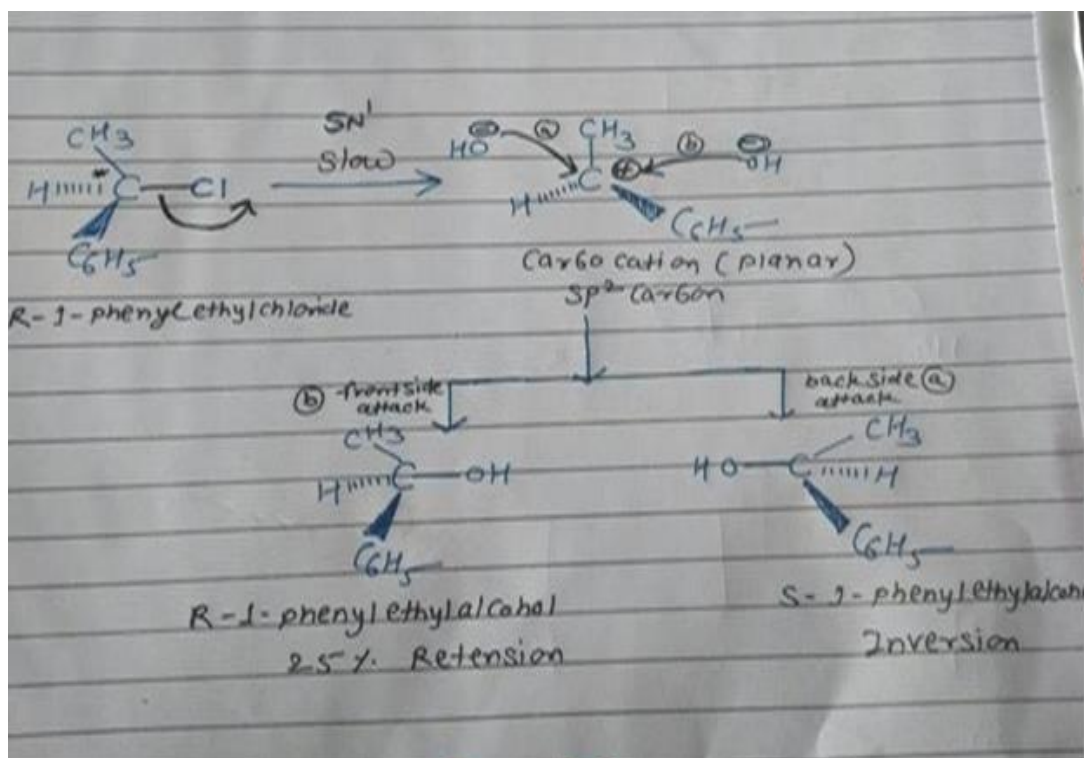 CH3
H C* Cl
C6H5
R-1-phenylethylchloride
SN1
Slow
HO⊖ ⓐ CH3 ⓑ ⊖OH
H C ⊕
C6H5
Carbo cation (planar)
SP2 Carbon
ⓑ frontside
attack
CH3
H C OH
C6H5
R-1-phenylethylalcohal
25% Retension
backside ⓐ
attack
CH3
HO C H
C6H5
S-1-phenylethylalcoh
Inversion